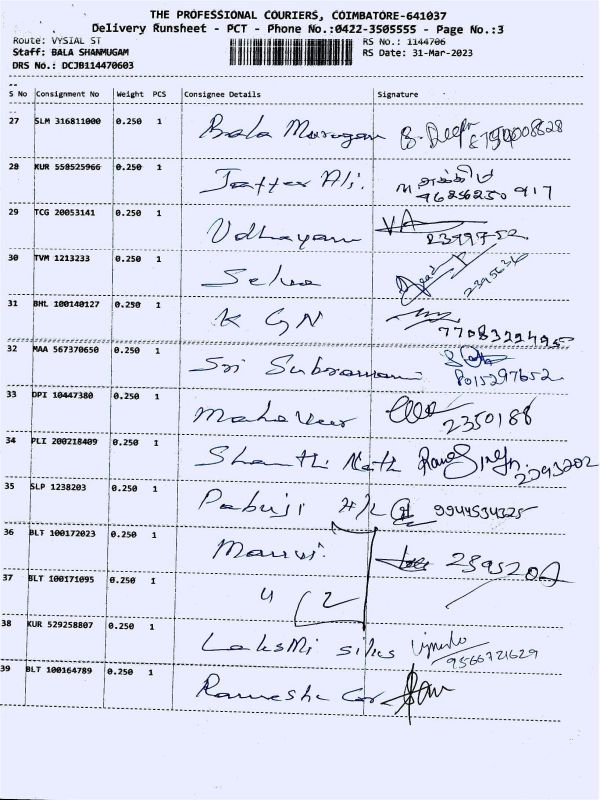 THE PROFESSIONAL COURIERS, COIMBATORE-641037
Delivery Runsheet - PCT - Phone No.:0422-3505555 - Page No.:3
Route: VYSIAL ST RS No.: 1144706
Staff: BALA SHANMUGAM RS Date: 31-Mar-2023
DRS No.: DCJB114470603
S No Consignment No Weight PCS Consignee Details Signature
27 SLM 316811000 0.250 1 Bala Murugan
28 KUR 550525966 0.250 1 Jaffer Ali. 9626250917
29 TCG 20053141 0.250 1 Udhayam 2399752
30 TVM 1213233 0.250 1 Selva 2395636
31 BHL 100140127 0.250 1 K G N
32 MAA 567370650 0.250 1 Sri Subramani 8015297652
33 DPI 10447380 0.250 1 Mahaveer 2350188
34 PLI 200218409 0.250 1 Shanthi Nath 2393202
35 SLP 1238203 0.250 1 Pabuji 9944534325
36 BLT 100172023 0.250 1
37 BLT 100171095 0.250 1 2
38 KUR 529258807 0.250 1 LaksMi silks 9566721629
39 BLT 100164789 0.250 1 Ramesh Car